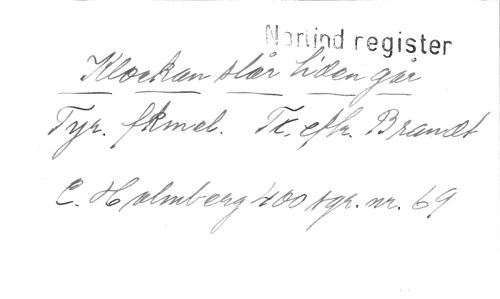 Norlind register
Klockan slår tiden går
Tyr. fkmel. Tr. eftr. Brandt
C. Holmberg 400 sgr. nr. 69